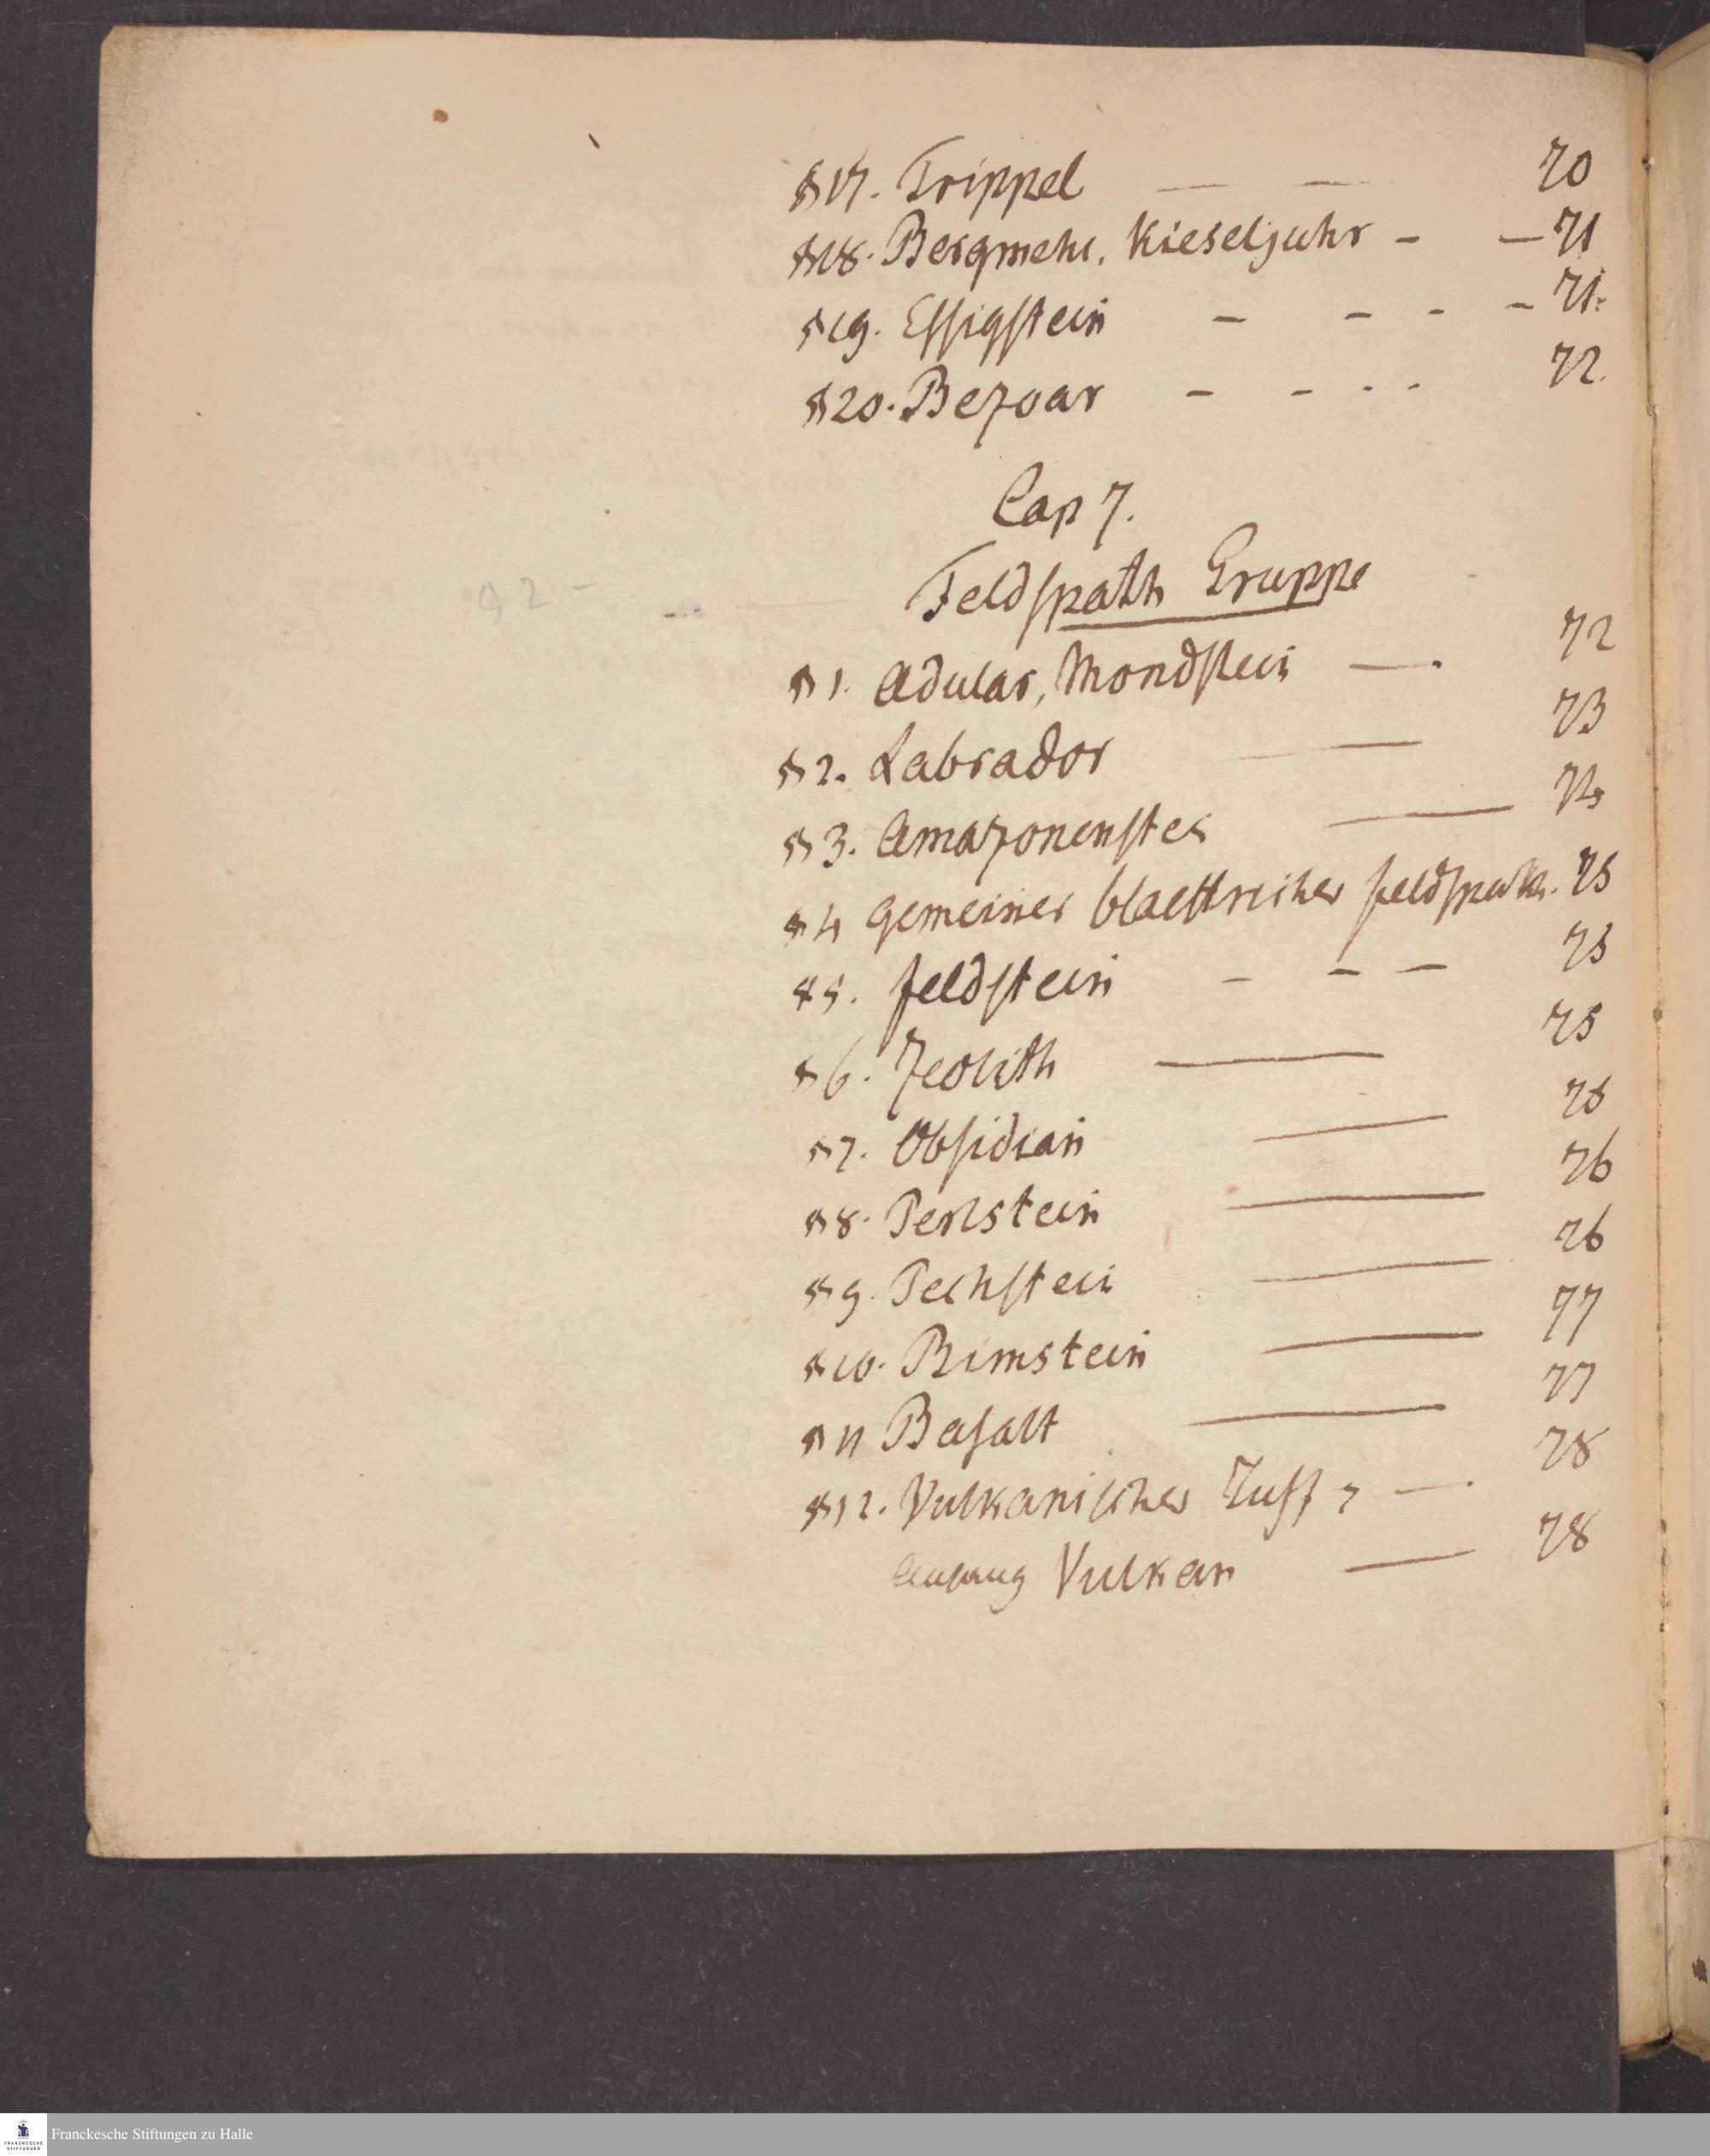 § 17. Trippel — — 70
§ 18. Bergmehl, Kieseljuhr - — 71
§ 19. Essigstein - - - - 71.
§ 20. Bezoar - - - - 72.
Cap 7.
Feldspath Gruppe
§ 1. Adular, Mondstein —. 72
§ 2. Labrador — 73
§ 3. Amazonenstei — 74
§ 4 Gemeiner blaettricher Feldspath. 75
§ 5. Feldstein - - - 75
§ 6. Zeolith — 75
§ 7. Obsidian — 76
§ 8. Perlstein — 76
§ 9. Pechstein — 76
§ 10. Bimstein — 77
§ 11 Basalt — 77
§ 12. Vulkanischer Tuff — 78
Vulkan — 78
Franckesche Stiftungen zu Halle
FRANCKESCHE
STIFTUNGEN